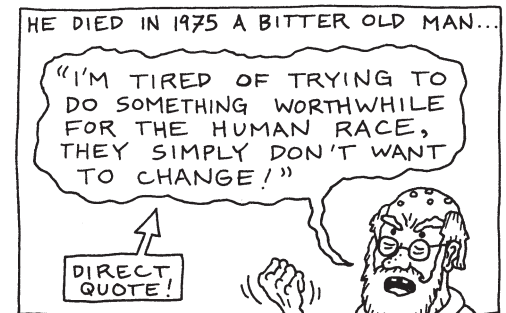 HE DIED IN 1975 A BITTER OLD MAN...
"I'M TIRED OF TRYING TO
DO SOMETHING WORTHWHILE
FOR THE HUMAN RACE,
THEY SIMPLY DON'T WANT
TO CHANGE!"
DIRECT
QUOTE!